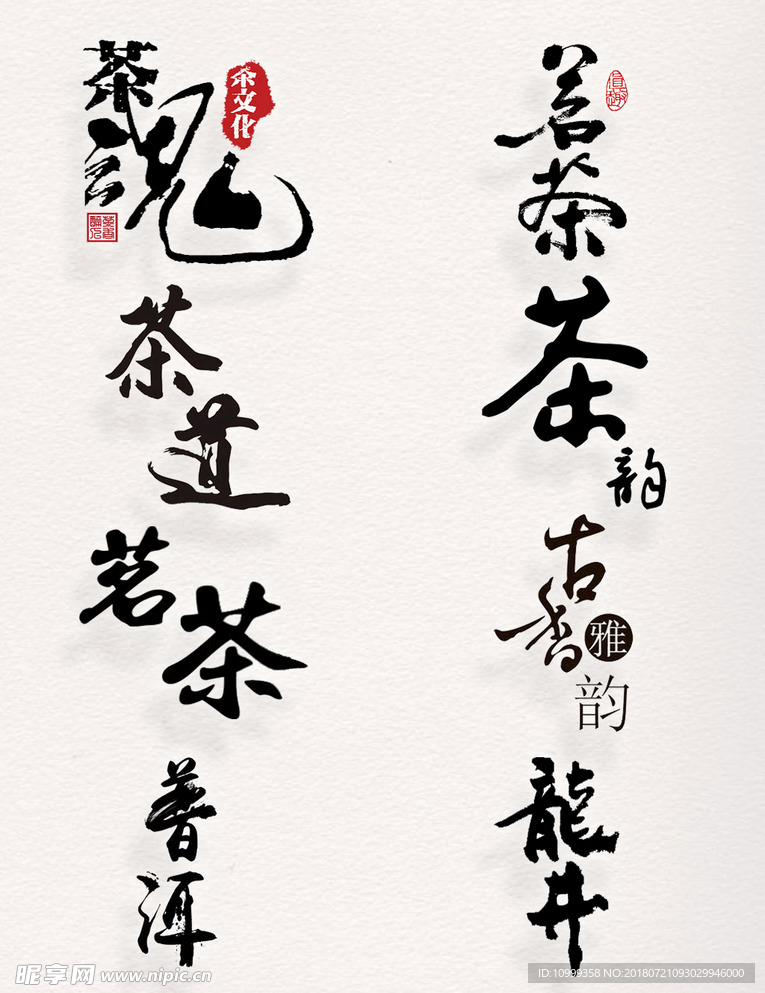 茶魂
茶文化
茗茶
茶道
茶韵
茗茶
古香
雅
韵
普洱
龍井
昵享网 www.nipic.cn
ID:10999358 NO:20180721093029946000